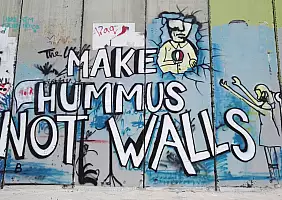 MAKE
HUMMUS
NOT WALLS